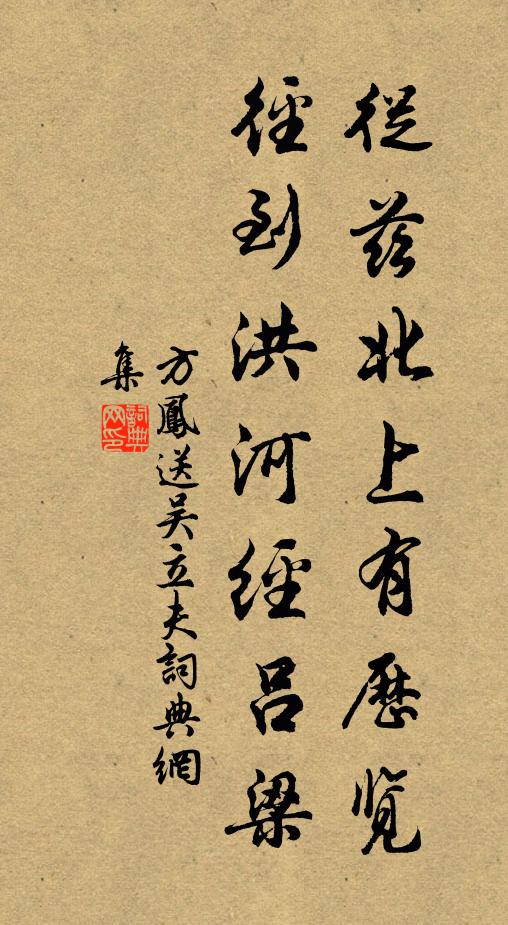 從茲北上有歷覽
徑到洪河經呂梁
方鳳送吳立夫詞典網
集
詞典網印